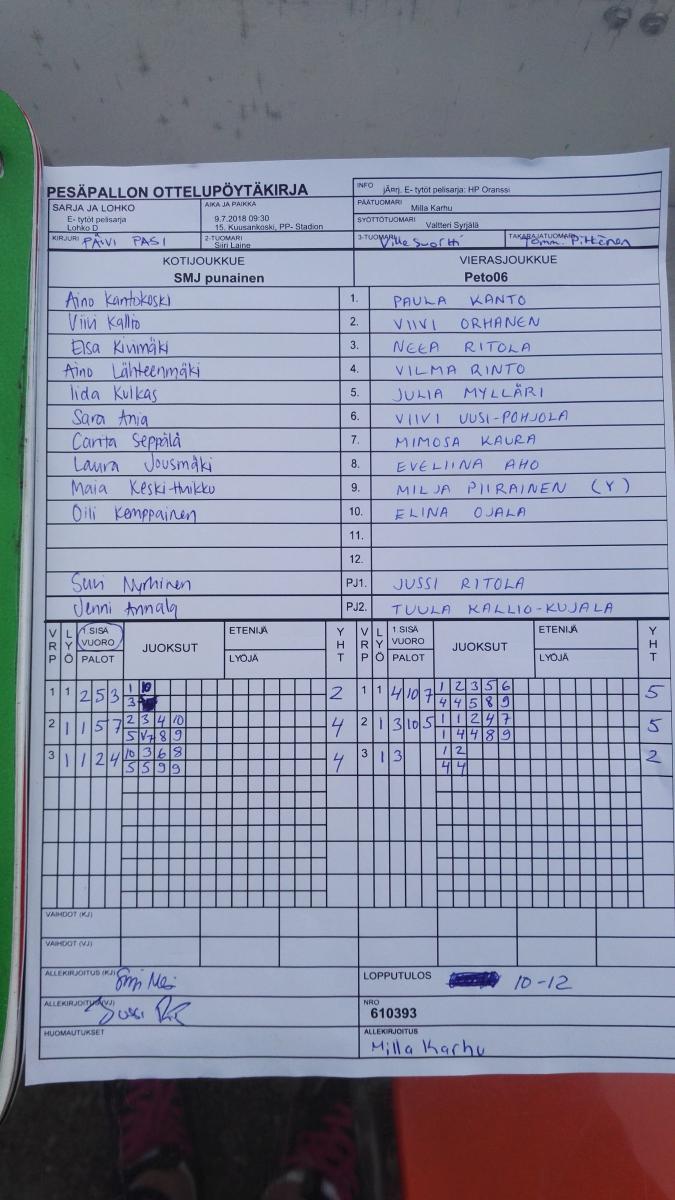 PESÄPALLON OTTELUPÖYTÄKIRJA
INFO jÄnrj. E- tytöt pelisarja: HP Oranssi
SARJA JA LOHKO
E- tytöt pelisarja
Lohko D
AIKA JA PAIKKA
9.7.2018 09:30
15. Kuusankoski, PP- Stadion
PÄÄTUOMARI Milla Karhu
SYÖTTÖTUOMARI Valtteri Syrjälä
KIRJURI PÄIVI PASI
2-TUOMARI Siiri Laine
3-TUOMARI Ville Suortti
TAKARAJATUOMARI Tommi Pitkänen
KOTIJOUKKUE VIERASJOUKKUE
SMJ punainen Peto06
Aino Kantokoski 1. PAULA KANTO
Viivi Kallio 2. VIIVI ORHANEN
Elsa Kivimäki 3. NEEA RITOLA
Aino Lähteenmäki 4. VILMA RINTO
Iida Kulkas 5. JULIA MYLLÄRI
Sara Ania 6. VIIVI UUSI-POHJOLA
Carita Seppälä 7. MIMOSA KAURA
Laura Jousmäki 8. EVELIINA AHO
Maia Keski-Huikku 9. MILJA PIIRAINEN (Y)
Oili Kemppainen 10. ELINA OJALA
11.
12.
Suvi Nyrhinen PJ1. JUSSI RITOLA
Jenni Annala PJ2. TUULA KALLIO-KUJALA
VRP LYÖ 1.SISÄ VUORO PALOT JUOKSUT ETENIJÄ LYÖJÄ YHT VRP LYÖ 1.SISÄ VUORO PALOT JUOKSUT ETENIJÄ LYÖJÄ YHT
1 1 2 5 3 1 10 2 1 1 4 10 7 1 2 3 5 6 5
3 4 4 5 8 9
2 1 1 5 7 2 3 4 10 4 2 1 3 10 5 1 1 2 4 7 5
5 7 8 9 1 4 4 8 9
3 1 1 2 4 10 3 6 8 4 3 1 3 1 2 2
5 5 9 9 4 4
VAIHDOT (KJ)
VAIHDOT (VJ)
ALLEKIRJOITUS (KJ)
LOPPUTULOS 10-12
ALLEKIRJOITUS (VJ) Jussi
NRO
610393
HUOMAUTUKSET
ALLEKIRJOITUS
Milla Karhu